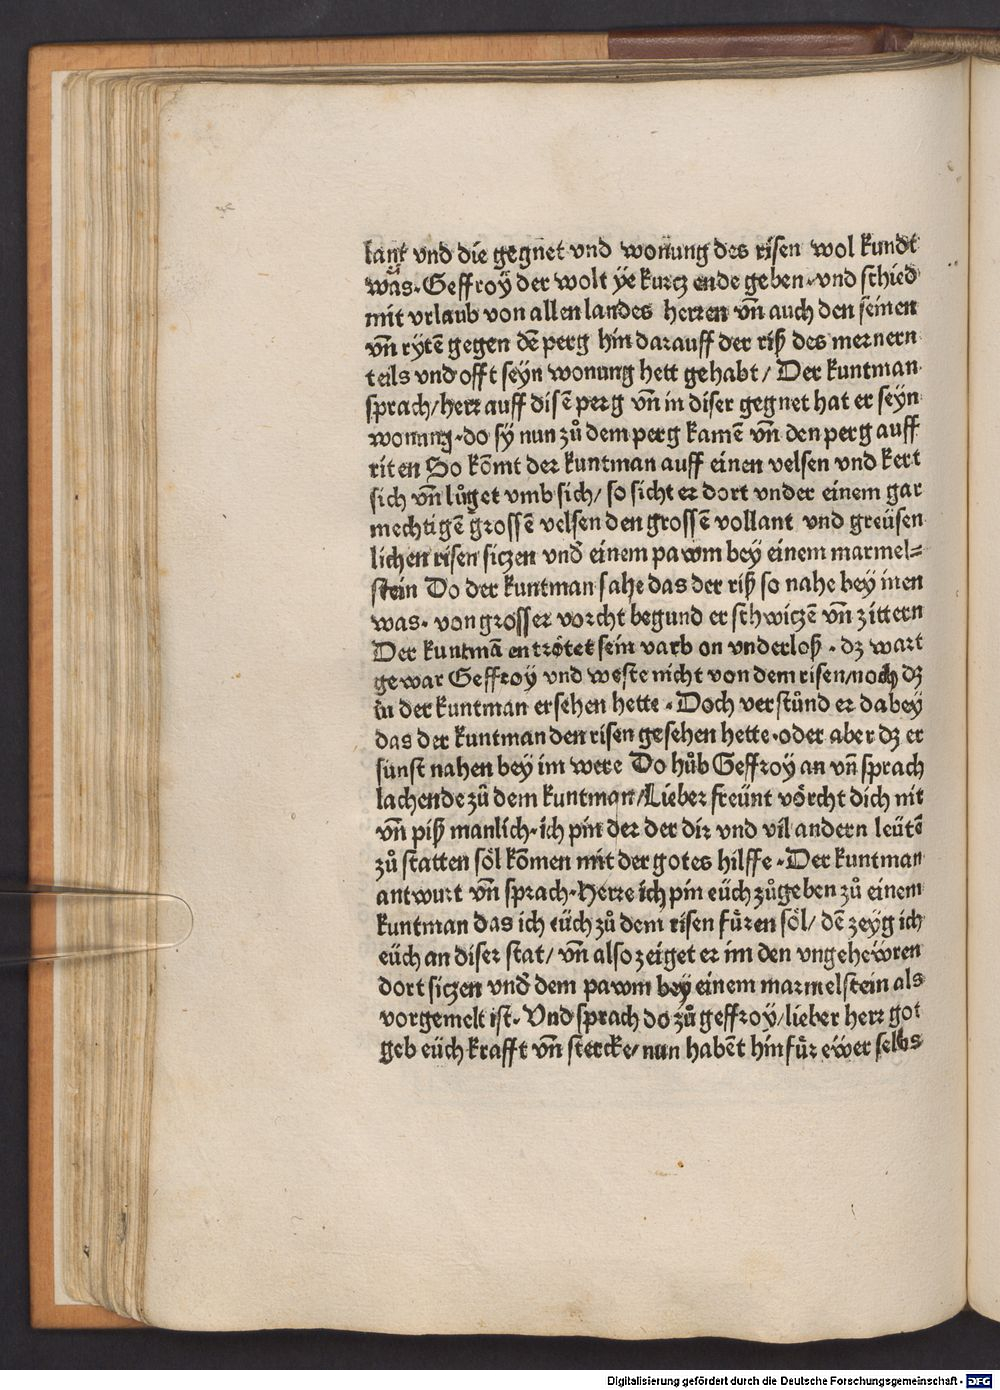 lant vnd die gegnet vnd wonung des risen wol kundt
was. Geffroÿ der wolt ye kurcz ende geben. vnd schied
mit vrlaub von allen landes herren vn̄ auch den seinen
vn̄ rÿtē gegen dē perg hin darauff der riß des mernern
teils vnd offt seÿn wonung hett gehabt/ Der kuntman
sprach/herr auff disē perg vn̄ in diser gegnet hat er seÿn
wonung. do sÿ nun zů dem perg kamē vn̄ den perg auff
riten So kōmt der kuntman auff einen velsen vnd kert
sich vn̄ lůget vmb sich/ so sicht er dort vnder einem gar
mechtigē grossē velsen den grossē vollant vnd greüsen
lichen risen siczen vnd̄ einem pawm beÿ einem marmel⸗
stein Do der kuntman sahe das der riß so nahe beÿ inen
was. von grosser vorcht begund er schwiczē vn̄ zittern
Der kuntmā entrötet sein varb on vnderloß. dz wart
gewar Geffroy vnd weste nicht von dem risen/noch dz
in der kuntman ersehen hette. Doch verstůnd er dabey
das der kuntman den risen gesehen hette. oder aber dz er
sunst nahen bey im were Do hůb Geffroy an vn̄ sprach
lachende zů dem kuntman/Lieber freünt vörcht dich nit
vn̄ piß manlich. ich pin der der dir vnd vil andern leütē
zů statten söl kōmen mit der gotes hilffe. Der kuntman
antwurt vn̄ sprach. Herre ich pin eüch zůgeben zů einem
kuntman das ich eüch zů dem risen füren söl/ dē zeyg ich
eüch an diser stat/ vn̄ also zeiget er im den vngeheẅren
dort siczen vnd̄ dem pawm beÿ einem marmelstein als
vorgemelt ist. Vnd sprach do zů geffroy/lieber herr got
geb eüch krafft vn̄ stercke/ nun habēt hinfür eẅer selbs
Digitalisierung gefördert durch die Deutsche Forschungsgemeinschaft - DFG